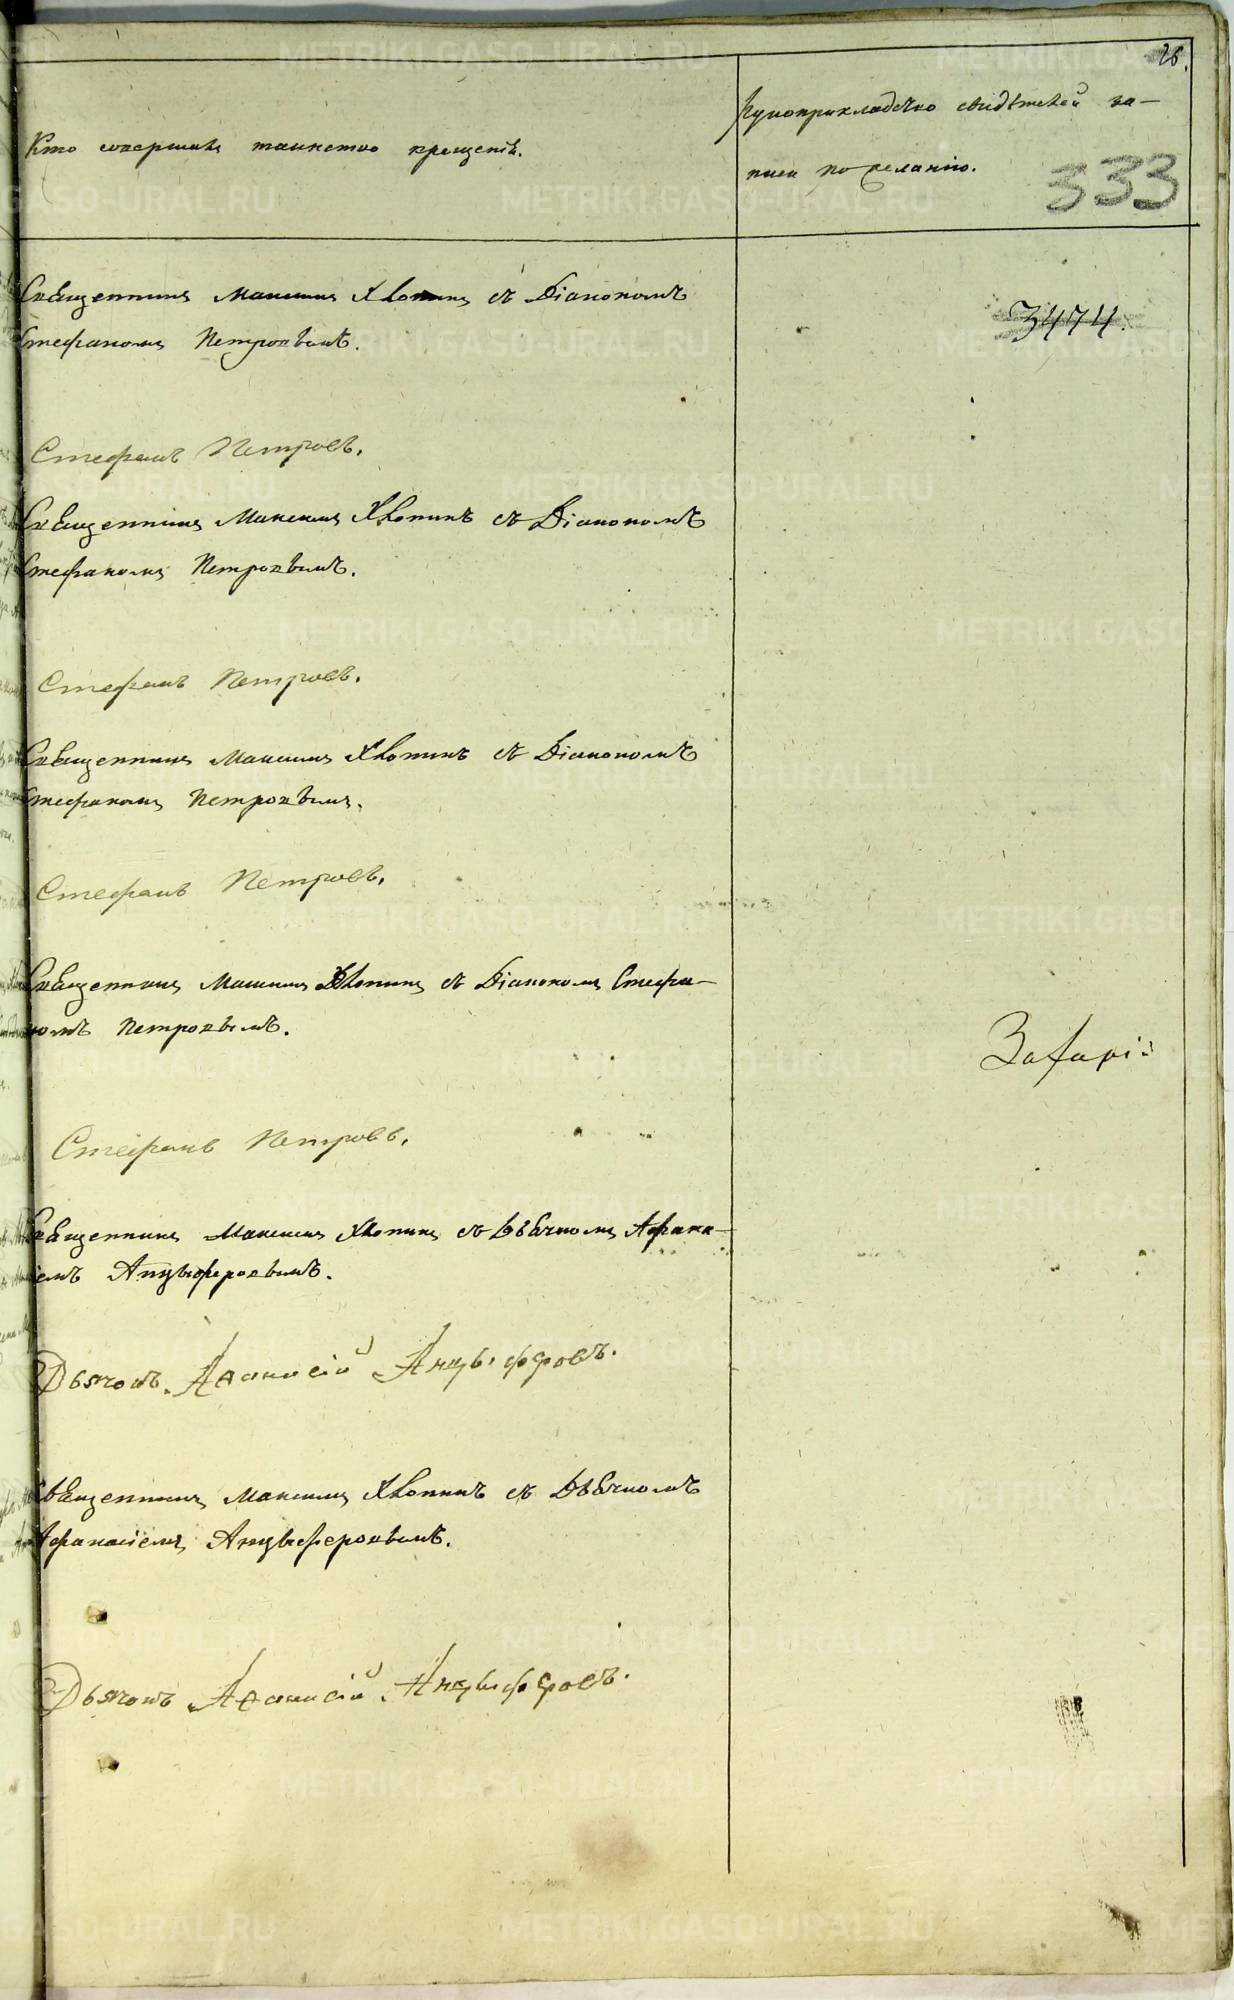 26.
Рукоприкладство свидѣтелей за-
писи по желанію.
333
Кто совершалъ таинство крещенія.
Священникъ Максимъ Хлопинъ съ Діакономъ
Стефаномъ Петровымъ.
3474.
Стефанъ Петровъ.
Священникъ Максимъ Хлопинъ съ Діакономъ
Стефаномъ Петровымъ.
Стефанъ Петровъ.
Священникъ Максимъ Хлопинъ съ Діакономъ
Стефаномъ Петровымъ.
Стефанъ Петровъ.
Священникъ Максимъ Хлопинъ съ Діакономъ Стефа-
номъ Петровымъ.
Захарій
Стефанъ Петровъ.
Священникъ Максимъ Хлопинъ съ Дьячкомъ Афана-
сіемъ Анцыферовымъ.
Дьячокъ Аѳанасій Анцыферовъ.
Священникъ Максимъ Хлопинъ съ Дьячкомъ
Афанасіемъ Анцыферовымъ.
Дьячокъ Аѳанасій Анцыферовъ.
METRIKI.GASO-URAL.RU